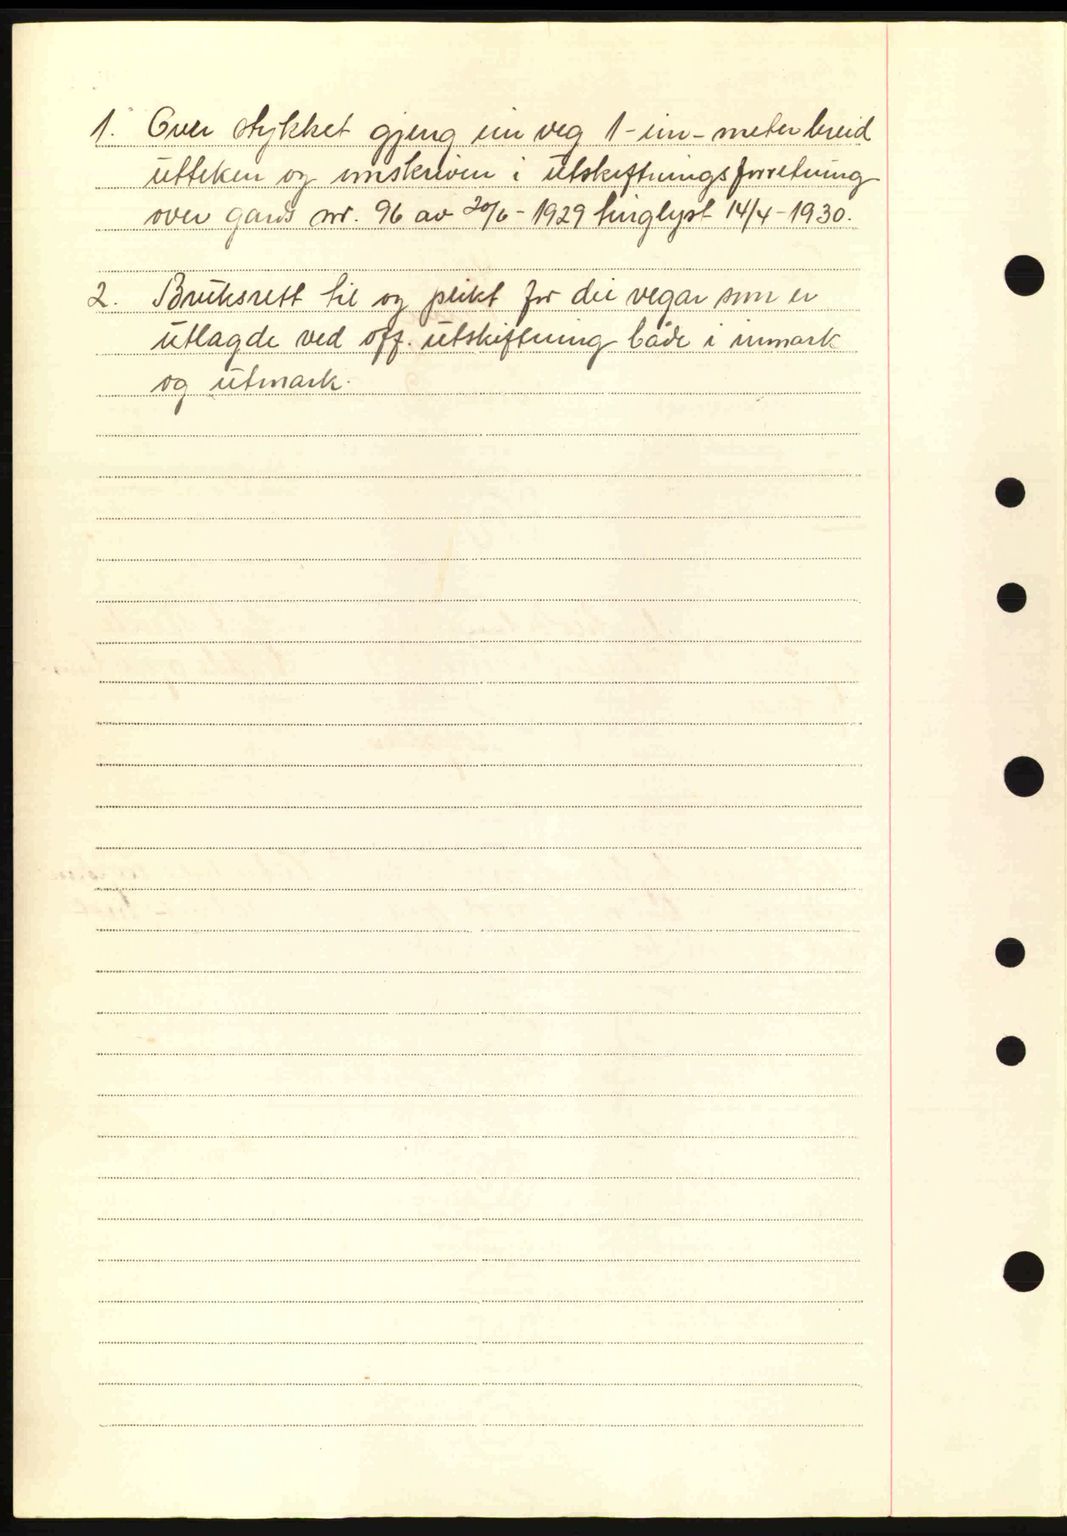 1. Over stykket gjeng ein veg 1-ein-meter breid
utteken og umskriven i utskiftningsforretning
over gards nr. 96 av 20/6-1929 tinglyst 14/4-1930.
2. Bruksrett til og plikt for dei vegar som er
utlagde ved off. utskiftning både i innmark
og utmark.